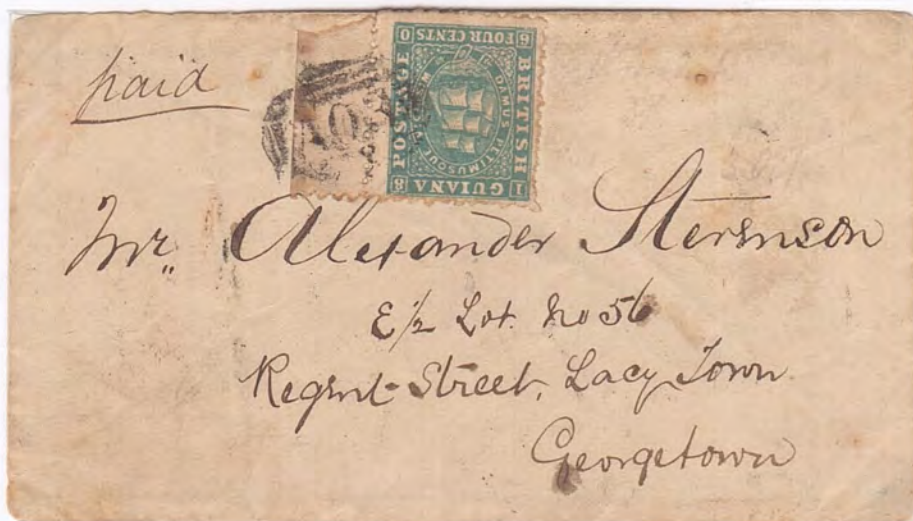 paid
BRITISH
GUIANA
POSTAGE
FOUR CENTS
1 8 6 0
DAMUS PETIMUSQUE
A03
Mr. Alexander Stevenson
E/2 Lot. No 56
Regent Street, Lacy Town
Georgetown